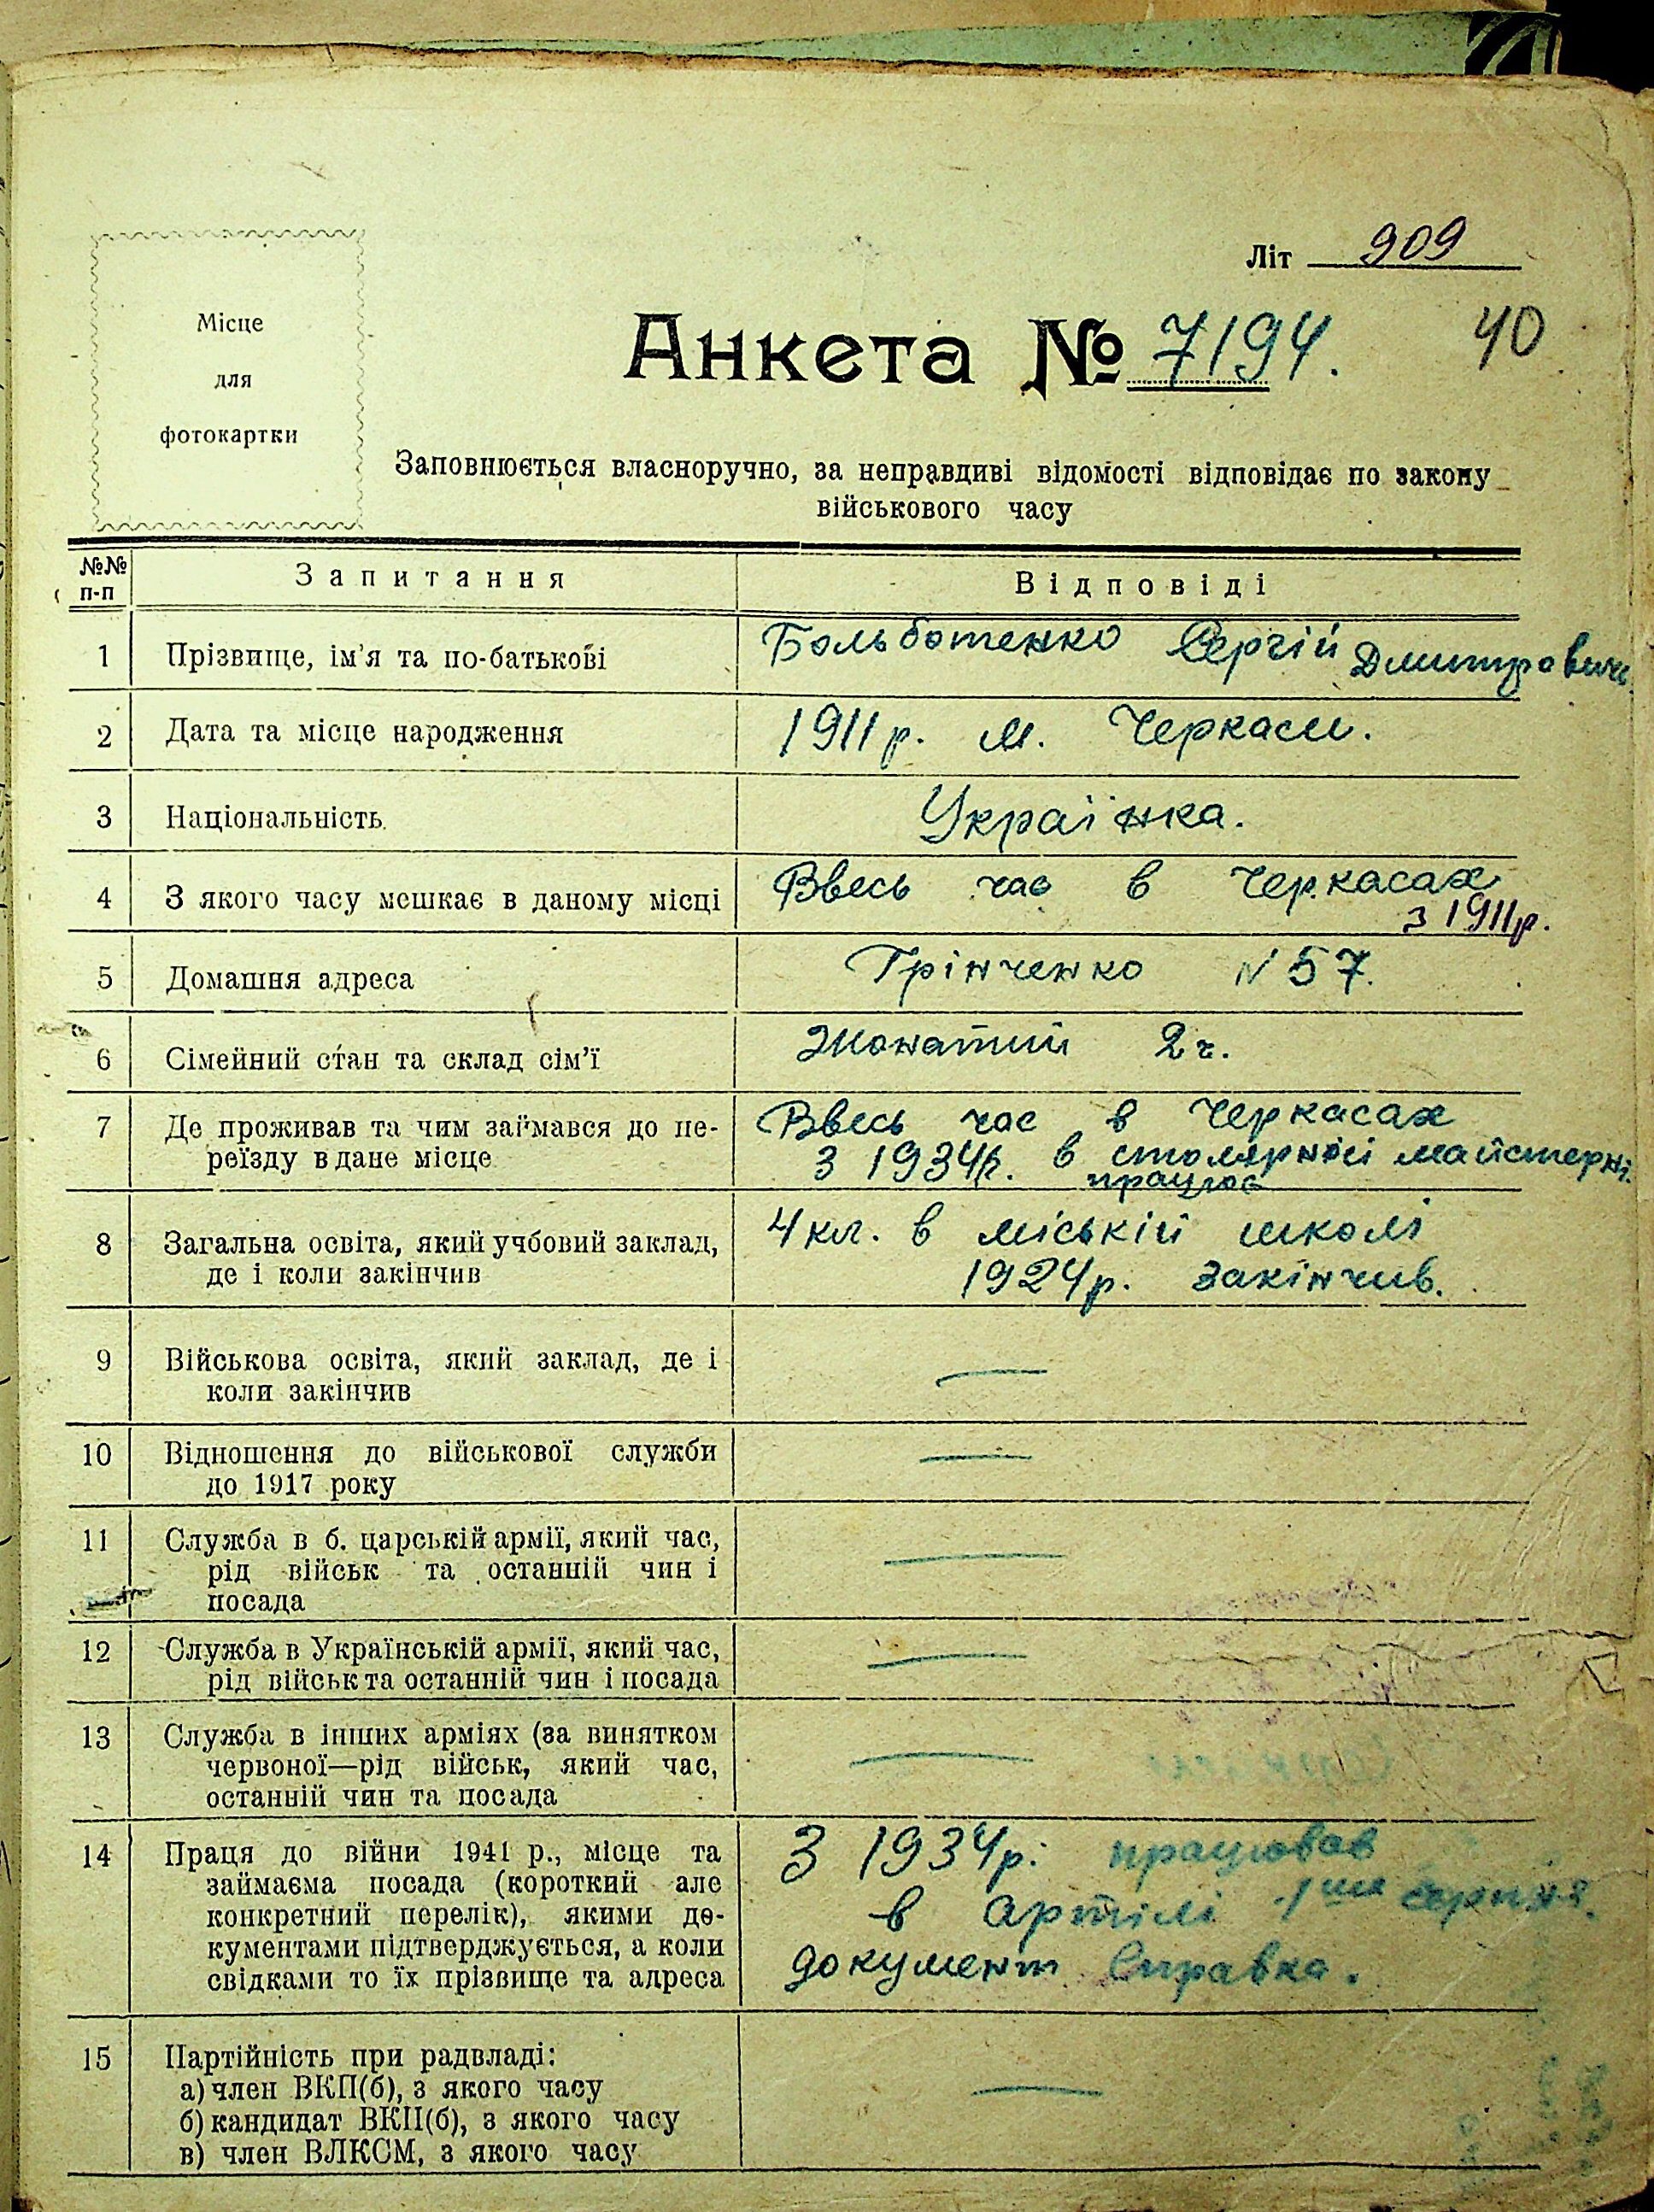 Літ 909
Місце
для
фотокартки
Анкета № 7194.
40
Заповнюється власноручно, за неправдиві відомості відповідає по закону
військового часу
№№ п-п
Запитання
Відповіді
1 Прізвище, ім'я та по-батькові
Больботенко Сергій Дмитрович.
2 Дата та місце народження
1911 р. м. Черкаси.
3 Національність
Українка.
4 З якого часу мешкає в даному місці
Ввесь час в Черкасах
з 1911р.
5 Домашня адреса
Грінченко N 57.
6 Сімейний стан та склад сім'ї
Жонатий 2 ч.
7 Де проживав та чим займався до пе-
реїзду в дане місце
Ввесь час в Черкасах
З 1934р. в столярній майстерні.
працює
8 Загальна освіта, який учбовий заклад,
де і коли закінчив
4 кл. в міській школі
1924р. закінчив.
9 Військова освіта, який заклад, де і
коли закінчив
—
10 Відношення до військової служби
до 1917 року
—
11 Служба в б. царській армії, який час,
рід військ та останній чин і
посада
—
12 Служба в Українській армії, який час,
рід військ та останній чин і посада
—
13 Служба в інших арміях (за винятком
червоної—рід військ, який час,
останній чин та посада
—
14 Праця до війни 1941 р., місце та
займаєма посада (короткий але
конкретний перелік), якими до-
кументами підтверджується, а коли
свідками то їх прізвище та адреса
З 1934р. працював
в артілі 1ше серпня.
документ Справка.
15 Партійність при радвладі:
а) член ВКП(б), з якого часу
б) кандидат ВКП(б), з якого часу
в) член ВЛКСМ, з якого часу
—